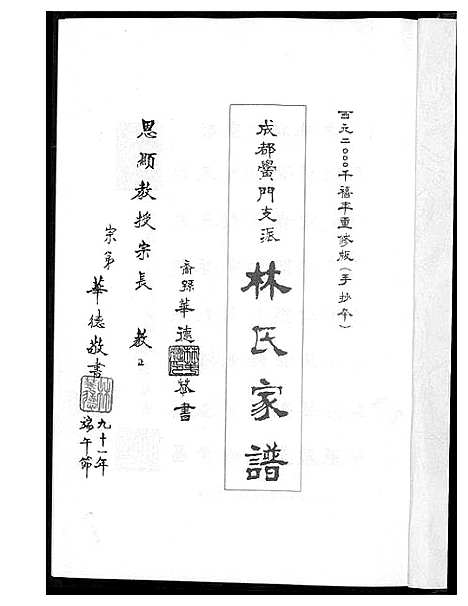 西元二〇〇〇千禧年重修版(手抄本)
成都黌門支派
林氏家譜
裔孫華德恭書
思顯教授宗長 教正
宗弟
華德敬書
九十一年
端午節